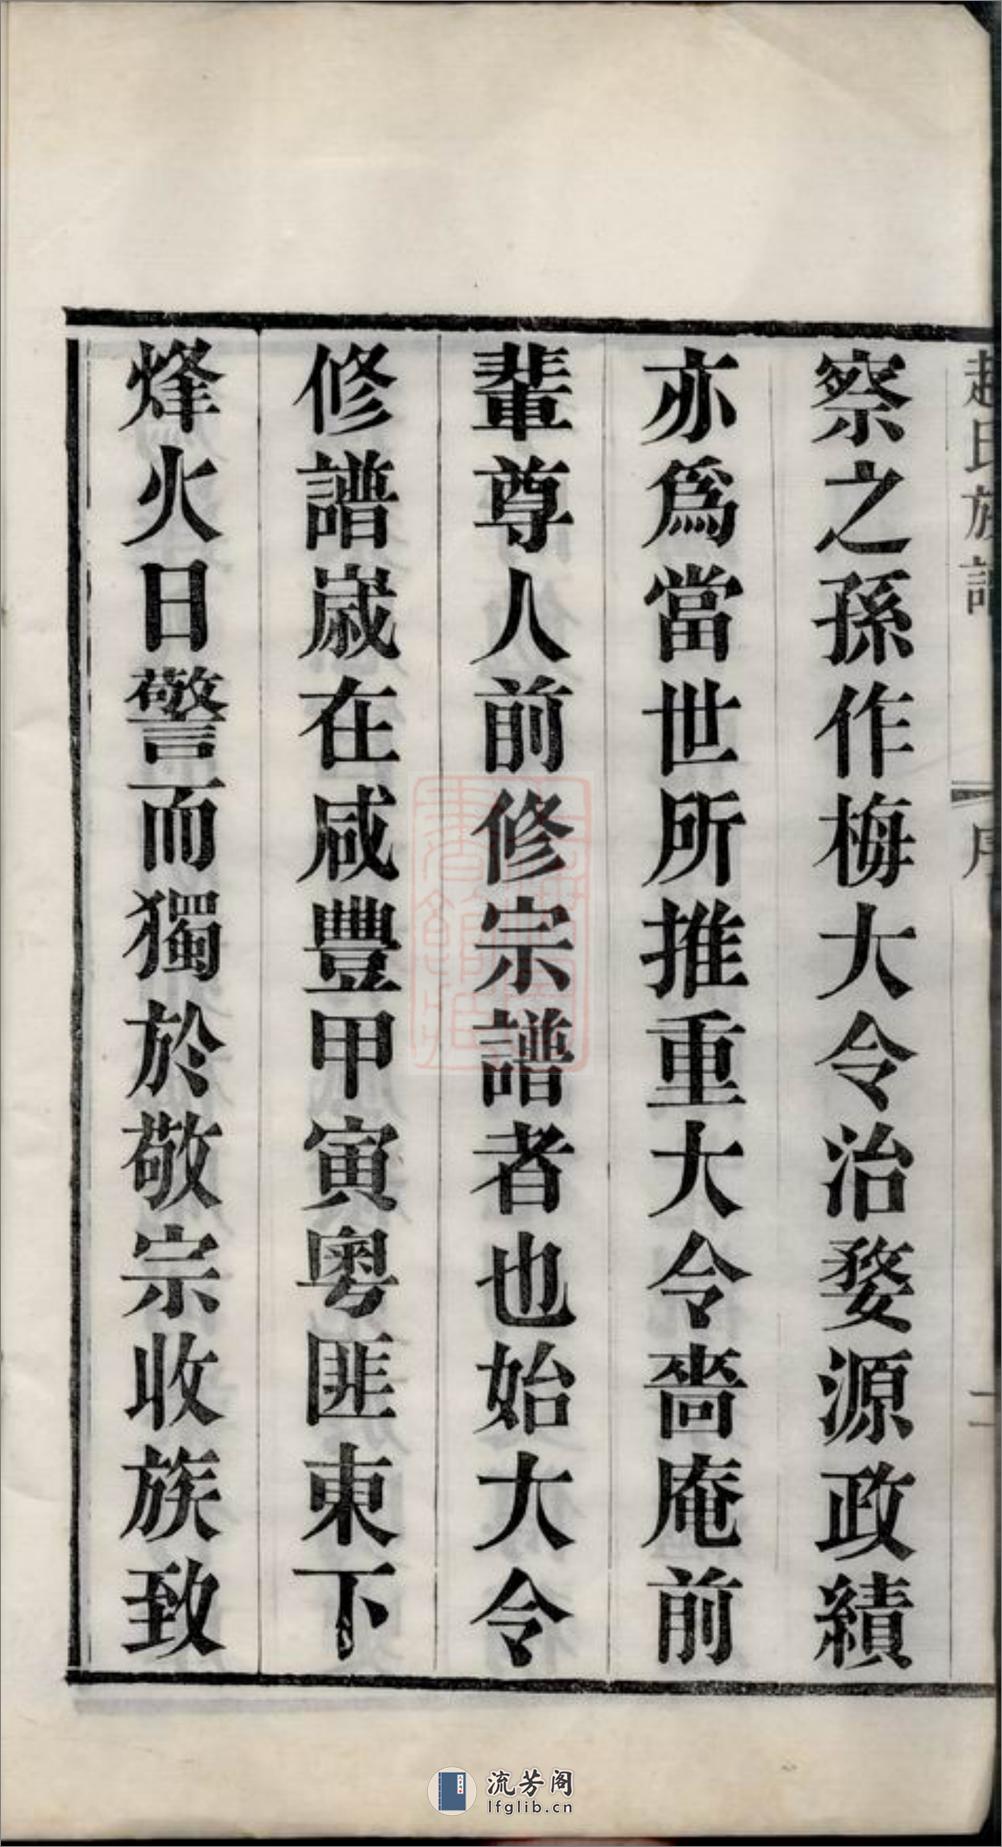 趙氏族譜 序 二
察之孫作梅大令治婺源政績
亦爲當世所推重大令嗇庵前
輩尊人前修宗譜者也始大令
修譜嵗在咸豐甲寅粵匪東下
烽火日警而獨於敬宗收族致
流芳阁
lfglib.cn